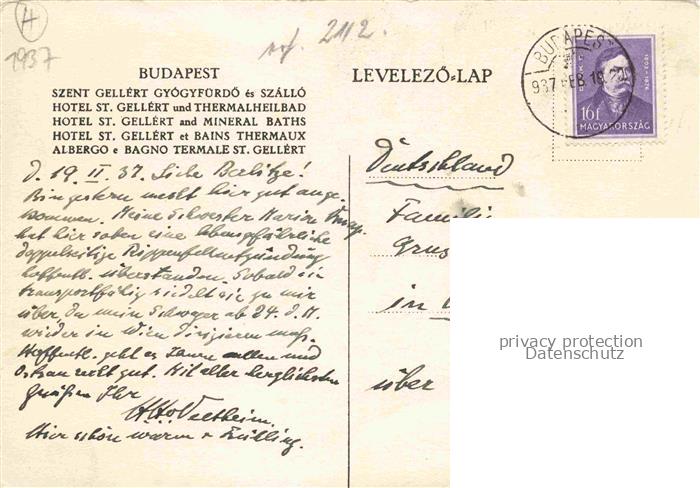 H
1937
ref. 2112.
BUDAPEST
SZENT GELLÉRT GYÓGYFÜRDŐ és SZÁLLÓ
HOTEL ST. GELLÉRT und THERMALHEILBAD
HOTEL ST. GELLÉRT and MINERAL BATHS
HOTEL ST. GELLÉRT et BAINS THERMAUX
ALBERGO e BAGNO TERMALE ST. GELLÉRT
LEVELEZŐ-LAP
BUDAPEST
937 FEB 19
16f
MAGYARORSZÁG
d. 19. II. 37. Liebe
Bin gestern hier gut ange-
kommen. Meine Schwester Maria
hat hier soeben eine lebensgefährliche
doppelseitige Rippenfellentzündung
hoffentl. überstanden. Sobald sie
transportfähig siedelt sie zu mir
über, da mein Schwager ab 24. d. M.
wieder in Wien dirigieren muss.
Hoffentl. geht es Ihnen allen und
recht gut. Mit allen herzlichsten
Grüßen Ihr
Veltheim.
Hier schön warm + Frühling.
Deutschland
Familie
in
über
privacy protection
Datenschutz